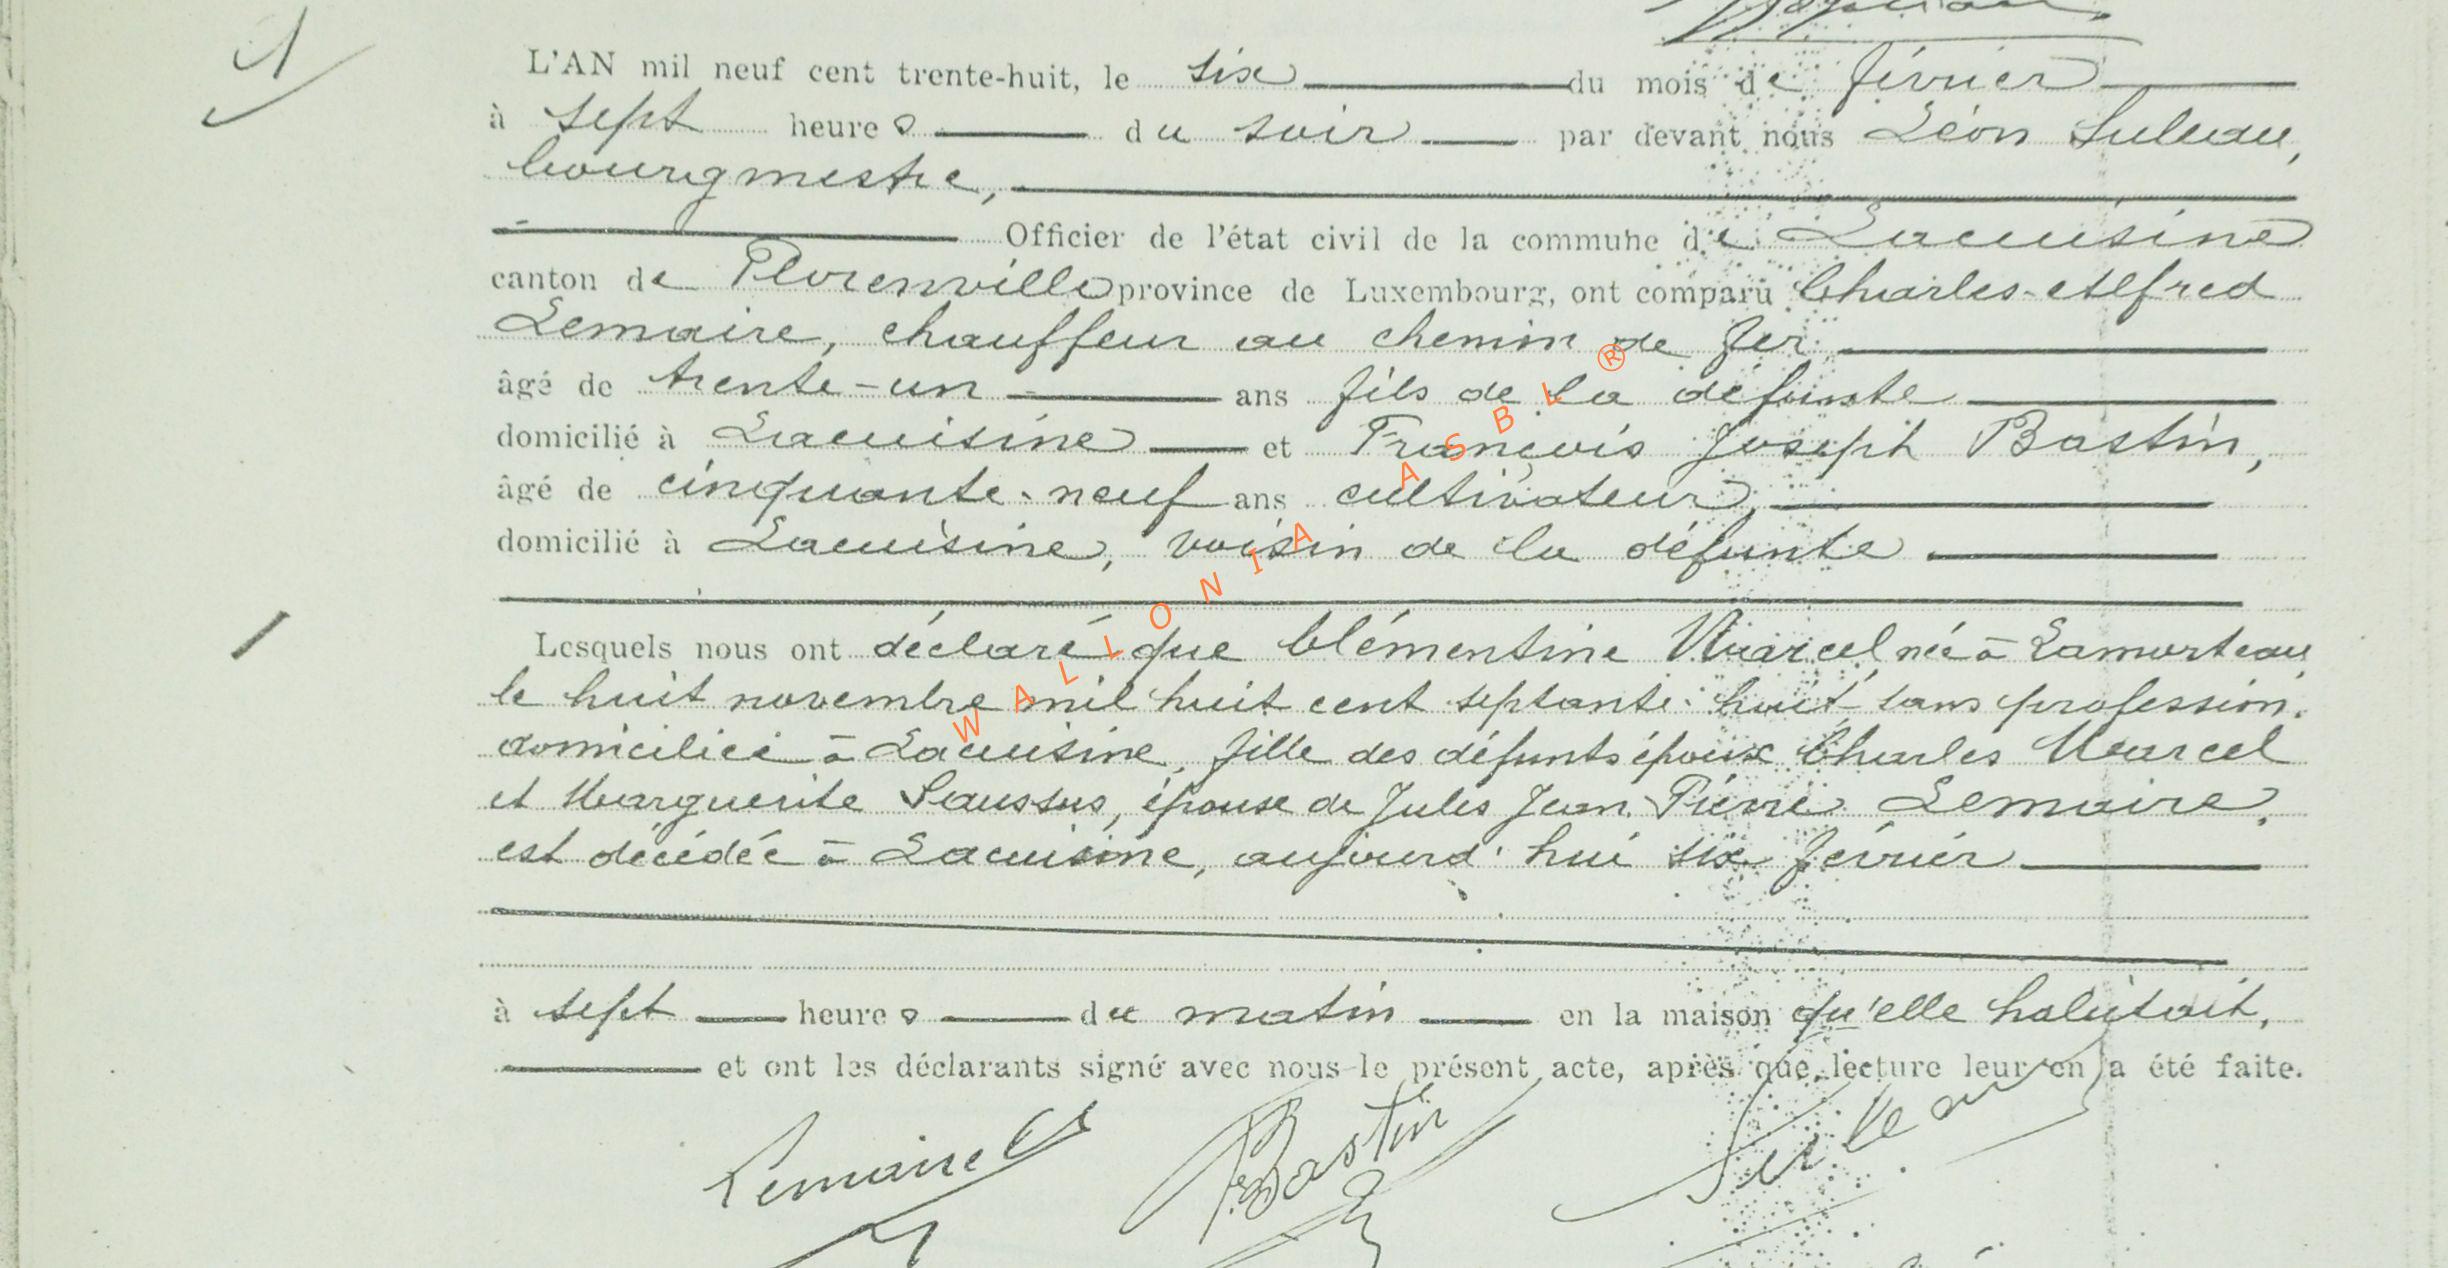 L'AN mil neuf cent trente-huit, le six du mois de février
à sept heures du soir par devant nous Léon Suleau,
bourgmestre,
Officier de l'état civil de la commune de Lacuisine
canton de Florenville province de Luxembourg, ont comparu Charles-Alfred
Lemaire, chauffeur au chemin de fer
âgé de trente-un ans fils de la défunte
domicilié à Lacuisine et François Joseph Bastin,
âgé de cinquante-neuf ans cultivateur,
domicilié à Lacuisine, voisin de la défunte
Lesquels nous ont déclaré que Clémentine Marcel née à Lamorteau
le huit novembre mil huit cent septante-huit sans profession.
domiciliée à Lacuisine, fille des défunts époux Charles Marcel
et Marguerite Saussus, épouse de Jules Jean Pierre Lemaire,
est décédée à Lacuisine, aujourd'hui six février
à sept heures du matin en la maison qu'elle habitait,
et ont les déclarants signé avec nous le présent acte, après que lecture leur en a été faite.
Lemaire Bastin Suleau
WALLONIA ASBL ®